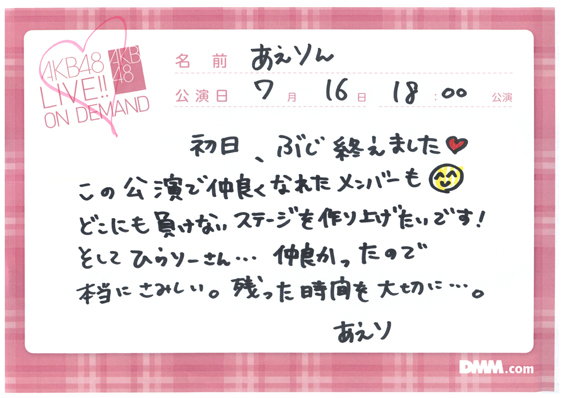 AKB48
LIVE!!
ON DEMAND
AKB
48
名前 あえりん
公演日 7月 16日 18:00 公演
初日、ぶじ終えました
この公演で仲良くなれたメンバーも
どこにも負けないステージを作り上げたいです!
そしてひらりーさん… 仲良かったので
本当にさみしい。残った時間を大切に…。
あえり
DMM.com